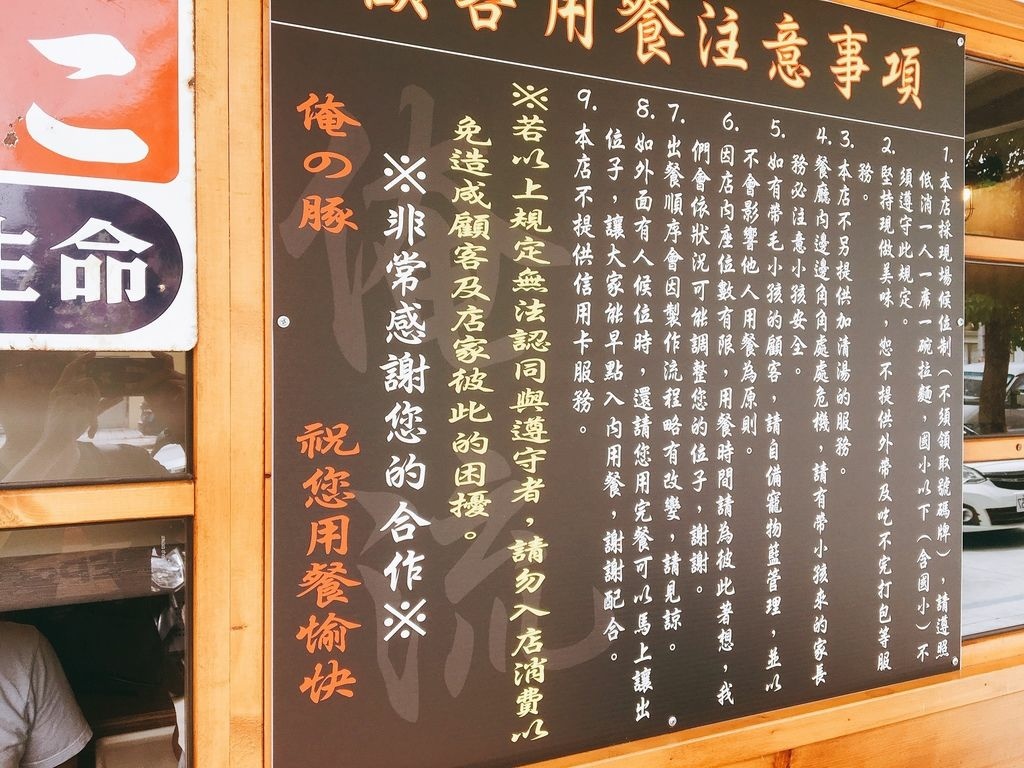 顧客用餐注意事項
1. 本店採現場候位制（不須領取號碼牌），請遵照
低消一人一席一碗拉麵。國小以下（含國小）不
須遵守此規定。
2. 堅持現做美味，恕不提供外帶及吃不完打包等服
務。
3. 本店不另提供加清湯的服務。
4. 餐廳內邊邊角角處處危機，請有帶小孩來的家長
務必注意小孩安全。
5. 如有帶毛小孩的顧客，請自備寵物籃管理，並以
不會影響他人用餐為原則。
6. 因店內座位數有限，用餐時間請為彼此著想，我
們會依狀況可能調整您的位子，謝謝。
7. 出餐順序會因製作流程略有改變，請見諒。
8. 如外面有人候位時，還請您用完餐可以馬上讓出
位子，讓大家能早點入內用餐，謝謝配合。
9. 本店不提供信用卡服務。
※若以上規定無法認同與遵守者，請勿入店消費以
免造成顧客及店家彼此的困擾。
※非常感謝您的合作※
俺の豚 祝您用餐愉快
俺 流
こ
生命